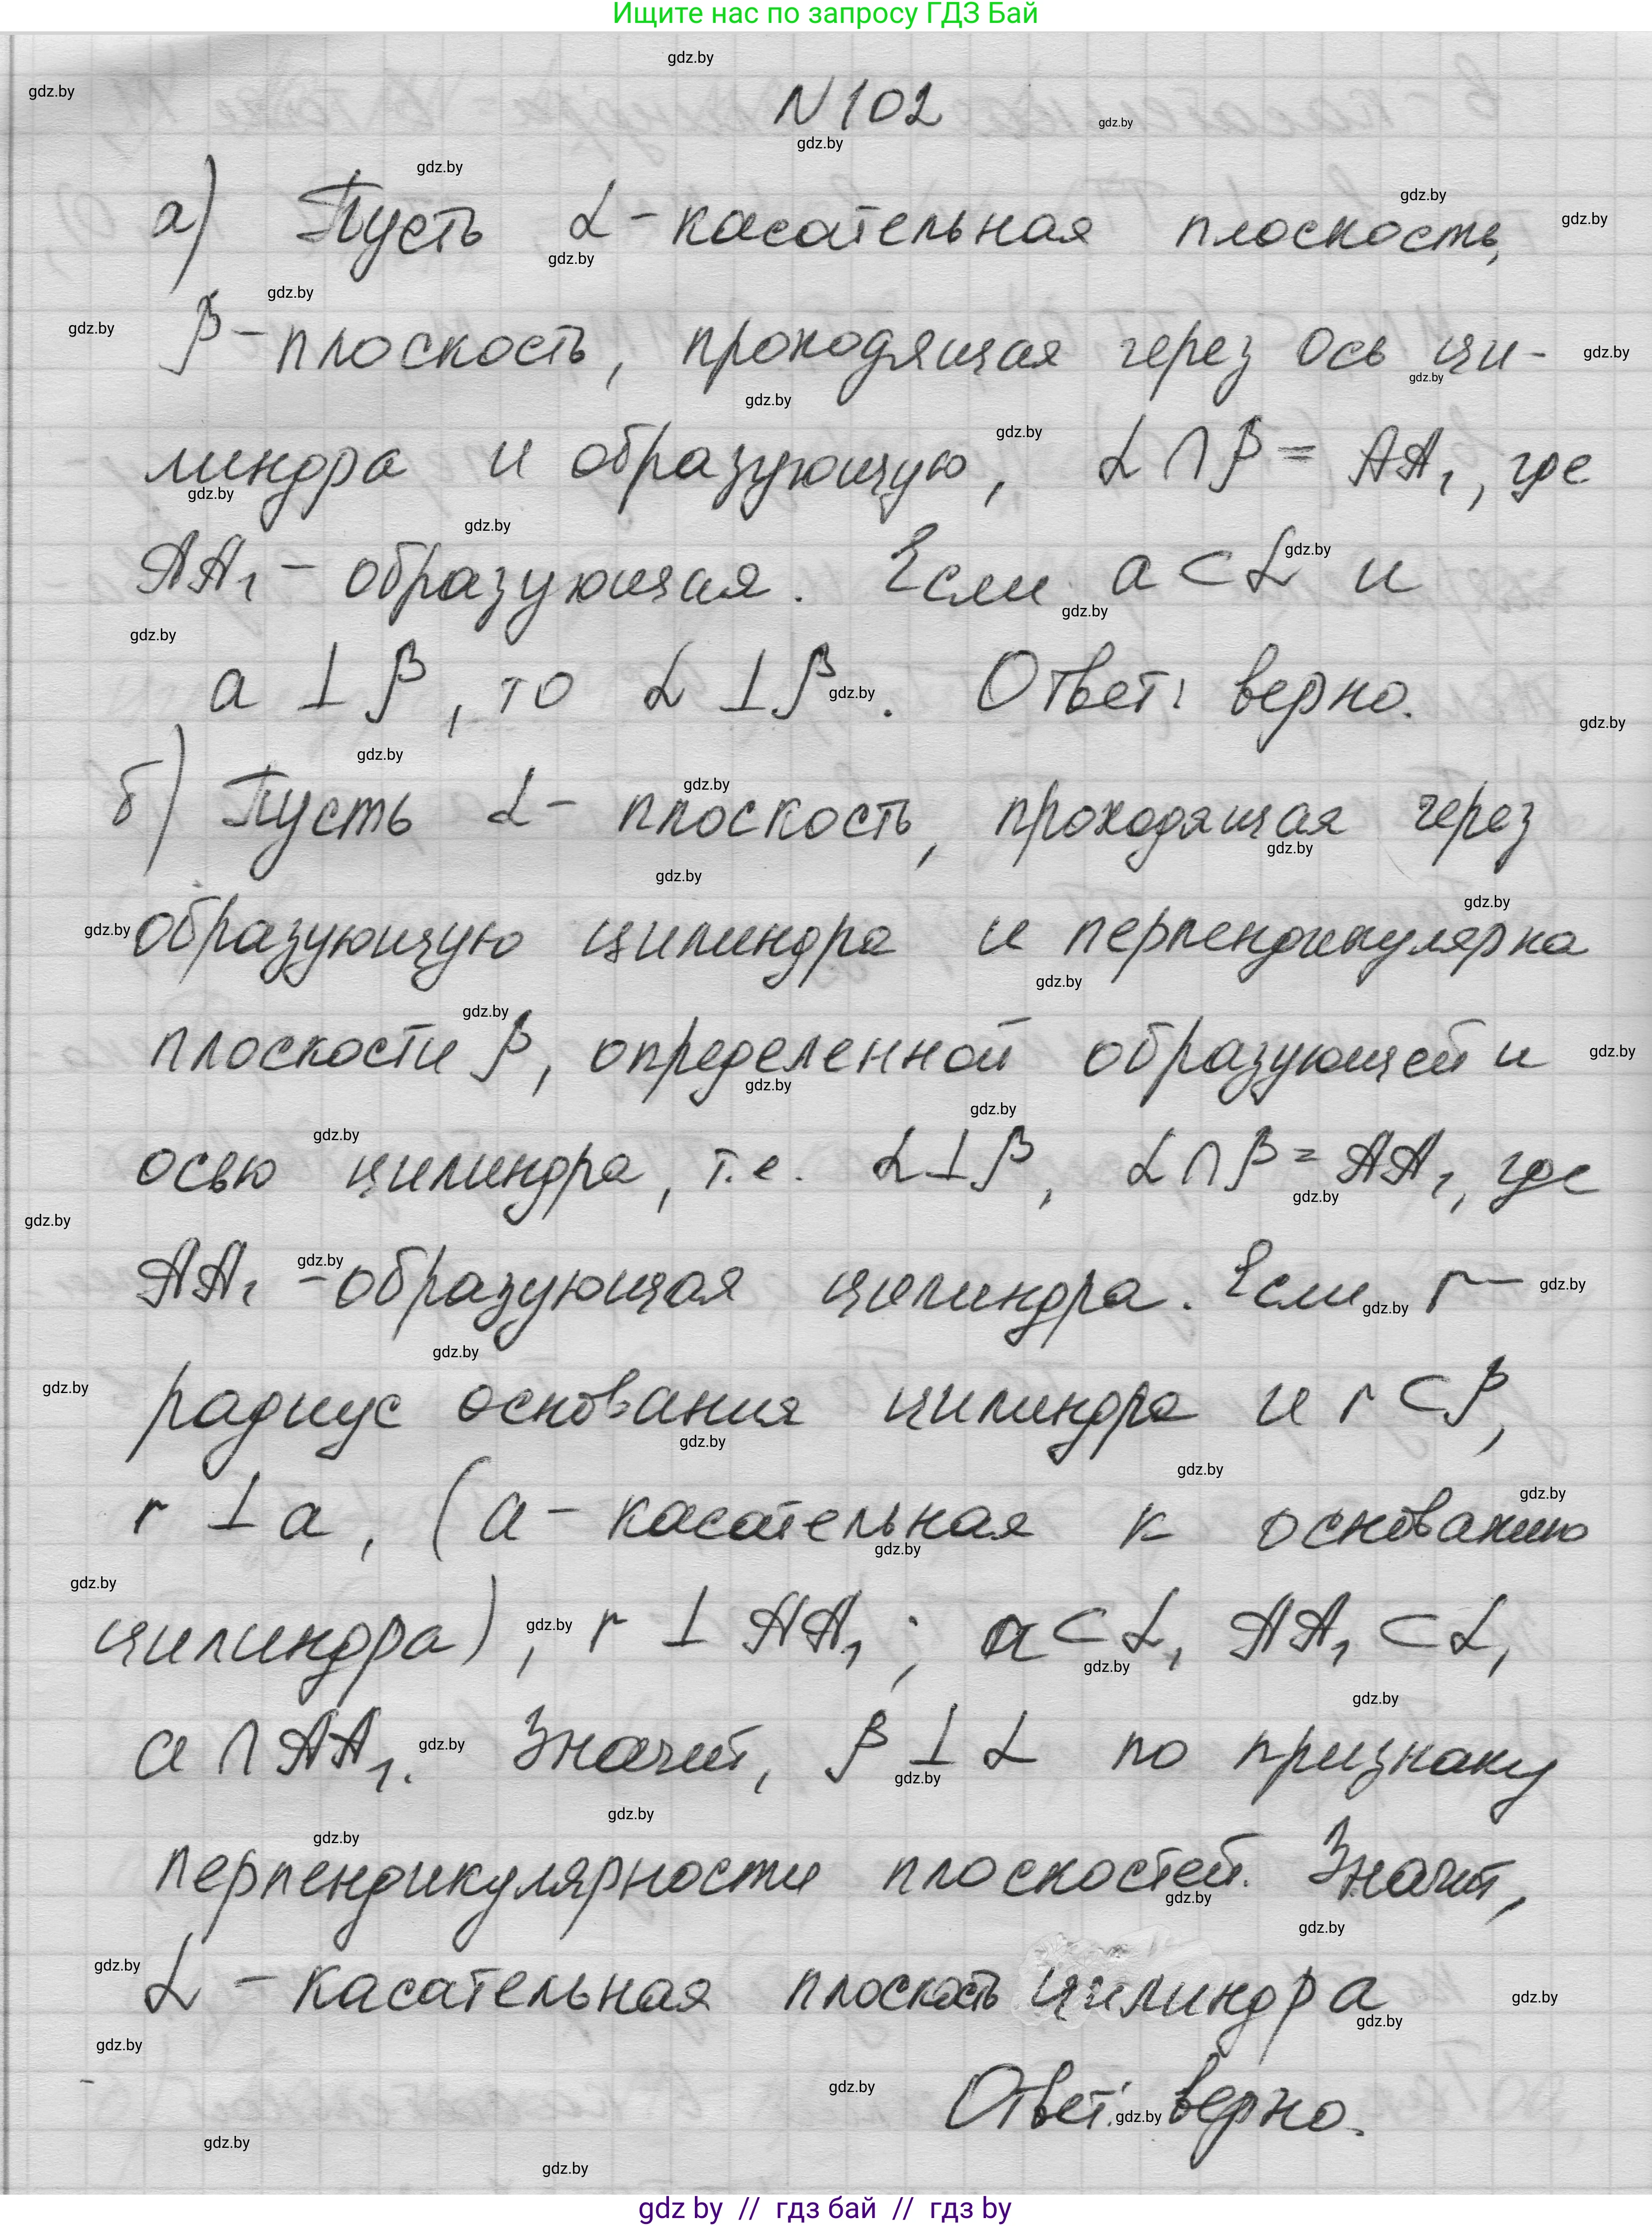 Ищите нас по запросу ГДЗ Бай
N 102
а) Пусть α - касательная плоскость,
β - плоскость, проходящая через ось ци-
линдра и образующую, α ∩ β = AA₁, где
AA₁ - образующая. Если a ⊂ α и
a ⊥ β, то α ⊥ β. Ответ: верно.
б) Пусть α - плоскость, проходящая через
образующую цилиндра и перпендикулярна
плоскости β, определенной образующей и
осью цилиндра, т.е. α ⊥ β, α ∩ β = AA₁, где
AA₁ - образующая цилиндра. Если r -
радиус основания цилиндра и r ⊂ β,
r ⊥ a, (a - касательная к основанию
цилиндра), r ⊥ AA₁; a ⊂ α, AA₁ ⊂ α,
a ∩ AA₁. Значит, β ⊥ α по признаку
перпендикулярности плоскостей. Значит,
α - касательная плоскость цилиндра
Ответ: верно.
gdz by // гдз бай // гдз by